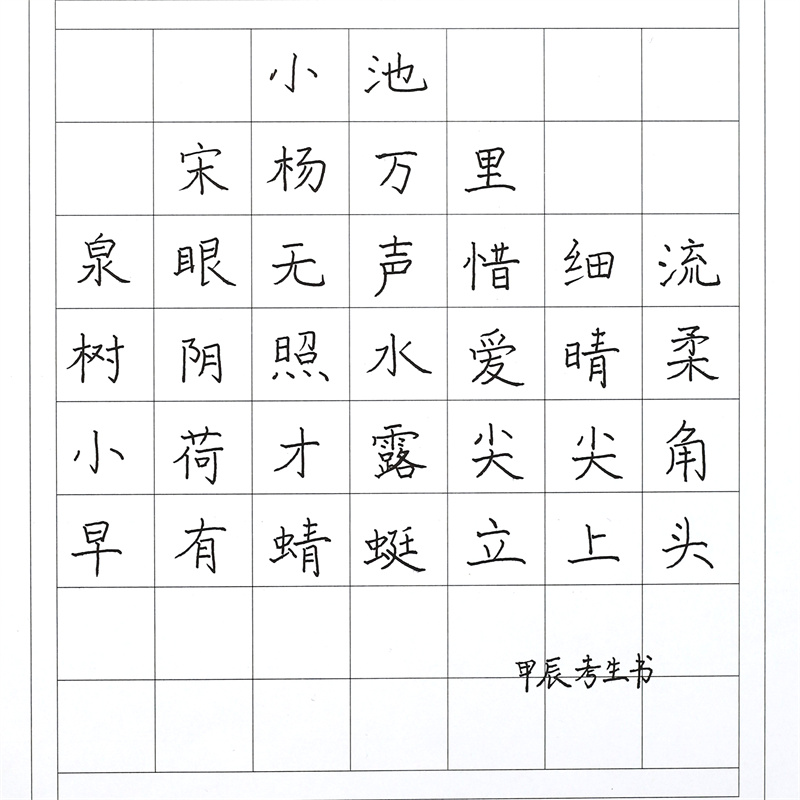 小池
宋杨万里
泉眼无声惜细流
树阴照水爱晴柔
小荷才露尖尖角
早有蜻蜓立上头
甲辰考生书